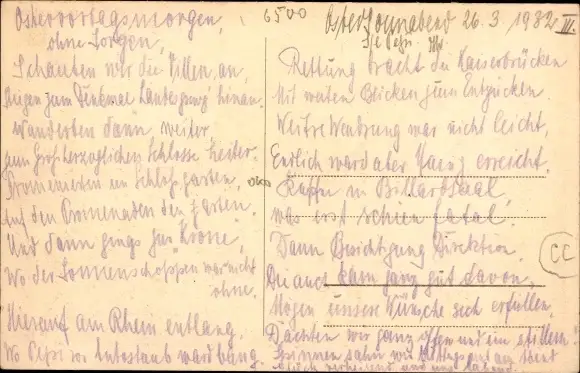 Ostervortagsmorgen,
ohne Sorgen,
Schauten wir die Villen an,
zum Denkmal hinan.
Wanderten dann weiter,
zum Großherzoglichen Schlosse heiter.
Promenierten im Schloßgarten,
Auf den Promenaden den zarten,
Und dann gings zur Krone,
Wo der Sonnenschoppen war nicht
ohne.
Hierauf am Rhein entlang.
Wo vor Autostaub ward bang.
6500
Ostersonnabend 26.3 1932 III.
Rettung bracht die Kaiserbrücken
Mit weiten Blicken zum Entzücken.
Weitre Wendrung war nicht leicht,
Endlich ward aber Mainz erreicht.
Kaffee in Billardsaal,
was erst schien fatal.
Dann Besichtigung Direktion,
Die auch kam ganz gut davon,
Mögen unsere Wünsche sich erfüllen,
Dachten wir ganz offen und im stillen.
CC